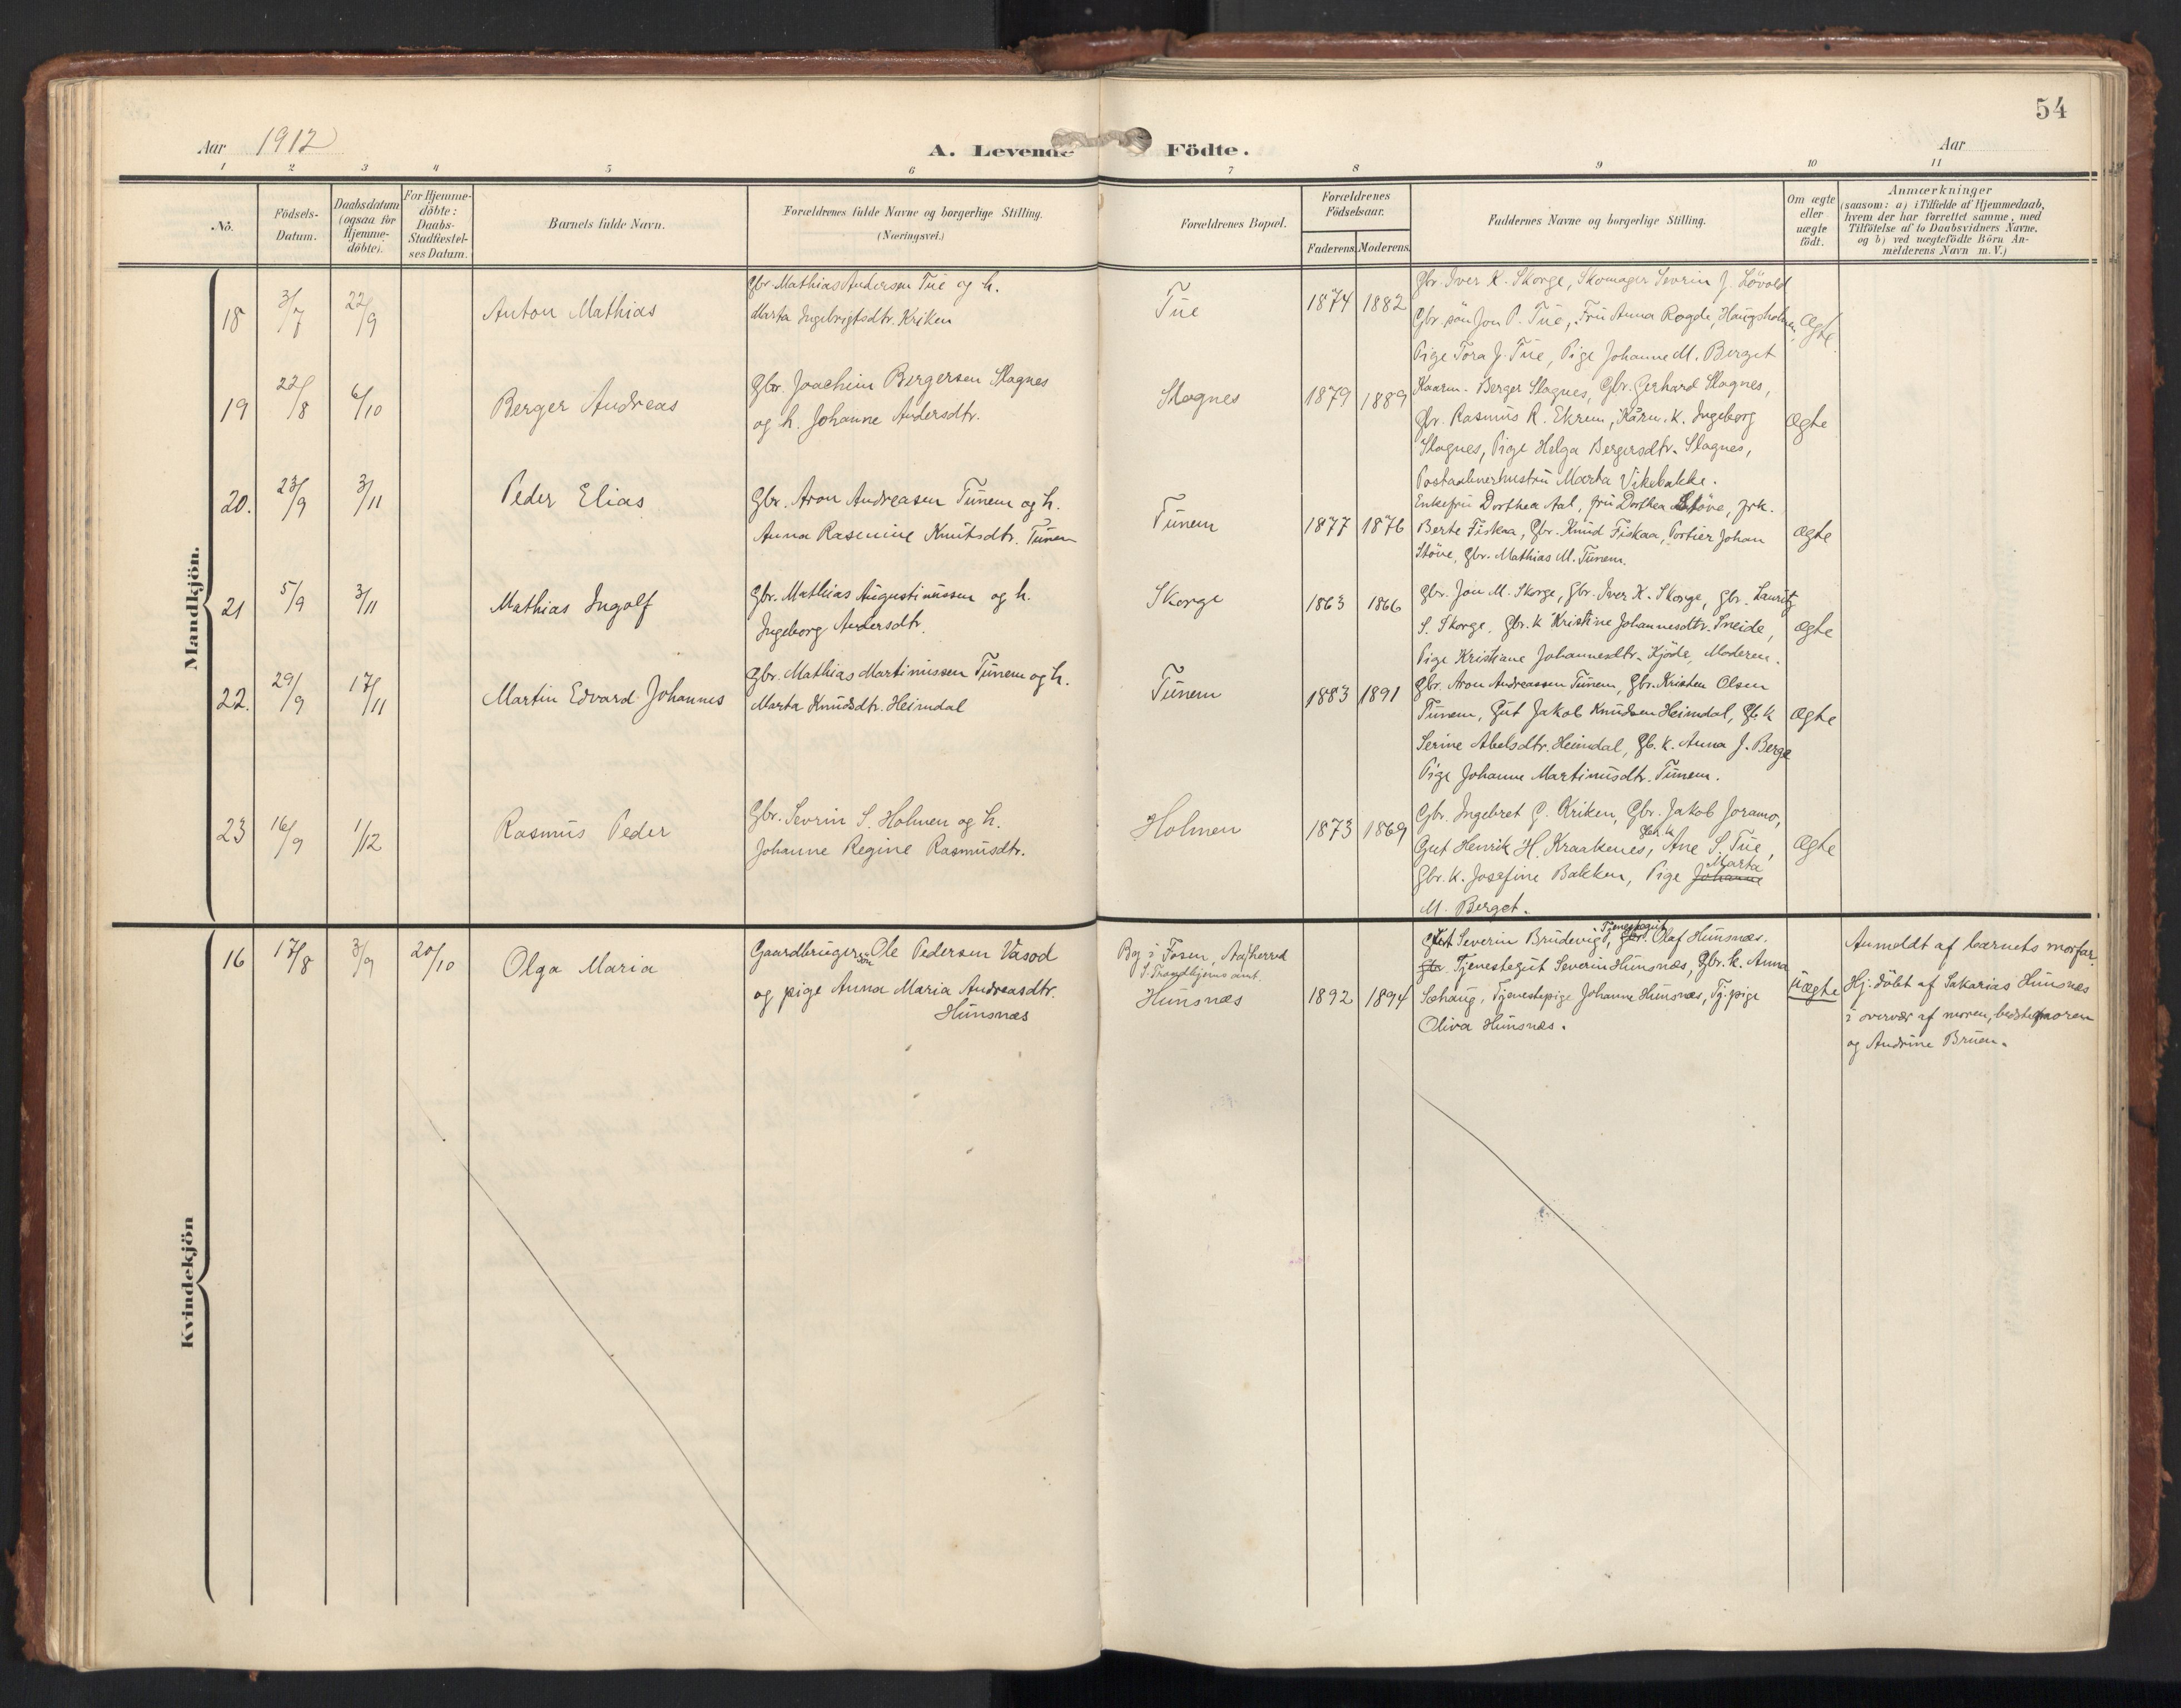 54
Aar 1912
A. Levende Födte.
Aar
1 2 3 4 5 6 7 8 9 10 11
No.
Födsels-Datum.
Daabsdatum (ogsaa for Hjemme-döbte).
For Hjemme-döbte: Daabs-Stadfæstel-ses Datum.
Barnets fulde Navn.
Forældrenes fulde Navne og borgerlige Stilling. (Næringsvei.)
Forældrenes Bopæl.
Forældrenes Födselsaar.
Faderens. Moderens.
Faddernes Navne og borgerlige Stilling.
Om ægte eller uægte födt.
Anmærkninger
(saasom: a) i Tilfælde af Hjemmedaab,
hvem der har forrettet samme, med
Tilföielse af to Daabsvidners Navne.
og b) ved uægtefödte Börn An-
melderens Navn m. V.)
Mandkjön.
18 3/7 22/9 Anton Mathias
Gbr. Mathias Andersen Tue og h.
Marta Ingebrigtsdtr. Kriken
Tue 1874 1882
Gbr. Iver K. Skorge, Skomager Sevrin J. Lövold
Gbr. sön Jon P. Tue, Fru Anna Rogde, Haugsholmen,
Pige Tora J. Tue, Pige Johanne M. Berget
Ægte.
19 22/8 6/10 Berger Andreas
Gbr. Joachim Bergersen Slagnes
og h. Johanne Andersdtr.
Slagnes 1879 1889
Kaarm. Berger Slagnes, Gbr. Gerhard Slagnes,
Gbr. Rasmus R. Ekrem, Kårm. k. Ingeborg
Slagnes, Pige Helga Bergersdtr. Slagnes,
Postaabnerhustru Marta Vikebakke.
Ægte
20. 23/9 3/11 Peder Elias
Gbr. Aron Andreasen Tunem og h.
Anna Rasmine Knutsdtr. Tunem
Tunem 1877 1876
Enkefru Dorthea Aal, fru Dorthea Stöve, frk.
Berte Fiskaa, Gbr. Knud Fiskaa, Portier Johan
Stöve, Gbr. Mathias M. Tunem.
Ægte
21 5/9 3/11 Mathias Ingolf
Gbr. Mathias Augustinussen og h.
Ingeborg Andersdtr.
Skorge 1863 1866
Gbr. Jon M. Skorge, Gbr. Iver K. Skorge, Gbr. Lauritz
S. Skorge, Gbr. k Kristine Johannesdtr. Sneide,
Pige Kristiane Johannesdtr. Kjöde, Moderen.
Ægte
22. 29/9 17/11 Martin Edvard Johannes
Gbr. Mathias Martinussen Tunem og h.
Marta Knudsdtr. Heimdal
Tunem 1883 1891
Gbr. Aron Andreassen Tunem, Gbr. Kristen Olsen
Tunem, Gut Jakob Knudsen Heimdal, Gb. k
Serine Abelsdtr. Heimdal, Gb. k. Anna J. Berge
Pige Johanne Martinusdtr. Tunem.
Ægte
23 16/9 1/12 Rasmus Peder
Gbr. Sevrin S. Holmen og h.
Johanne Regine Rasmusdtr.
Holmen 1873 1869
Gbr. Ingebret G. Kriken, Gbr. Jakob Joramo,
Gut Henrik H. Kraakenes, Gbr. k. Ane S. Tue,
Gbr. k. Josefine Bakken, Pige Johanne Marta
M. Berget.
Ægte
Kvindekjön
16 17/8 3/9 20/10 Olga Maria
Gaardbruger sön Ole Pedersen Vasöd
og pige Anna Maria Andreasdtr.
Hunsnæs
S. Trondhjems amt.
Hunsnæs 1892 1894
Gut Severin Brudevig, Tjenestegut Olaf Hunsnæs.
Tjenestegut Severin Hunsnæs, Gbr. k. Anna
Sæhaug, Tjenestepige Johanne Hunsnæs, Tj. pige
Oliva Hunsnæs.
Uægte
Anmeldt af barnets morfar.
Hj. döbt af Sakarias Hunsnæs
i overvær af moren, bedstemoren
og Andrine Bruen.